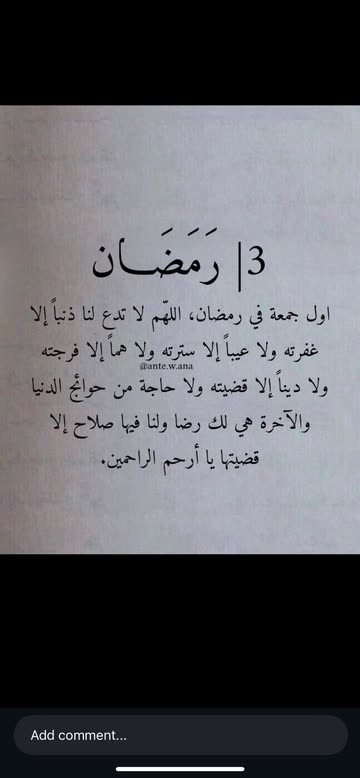 3| رَمَضَـــان
اول جمعة في رمضان، اللهّم لا تدع لنا ذنباً إلا
غفرته ولا عيباً إلا سترته ولا هماً إلا فرجته
@ante.w.ana
ولا ديناً إلا قضيته ولا حاجة من حوائج الدنيا
والآخرة هي لك رضا ولنا فيها صلاح إلا
قضيتها يا أرحم الراحمين.
Add comment...